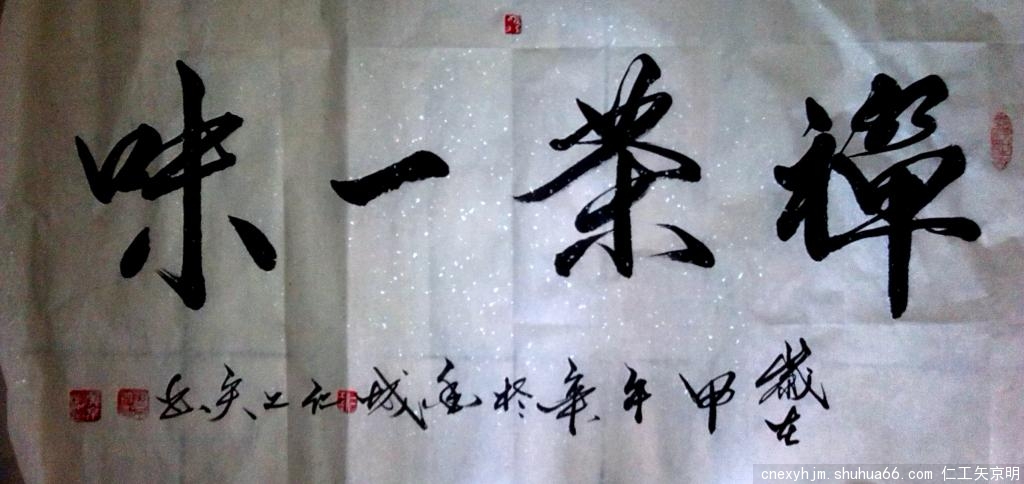 禪茶一味
歲在甲午於城仁工矢
cnexyhjm.shuhua66.com 仁工矢京明